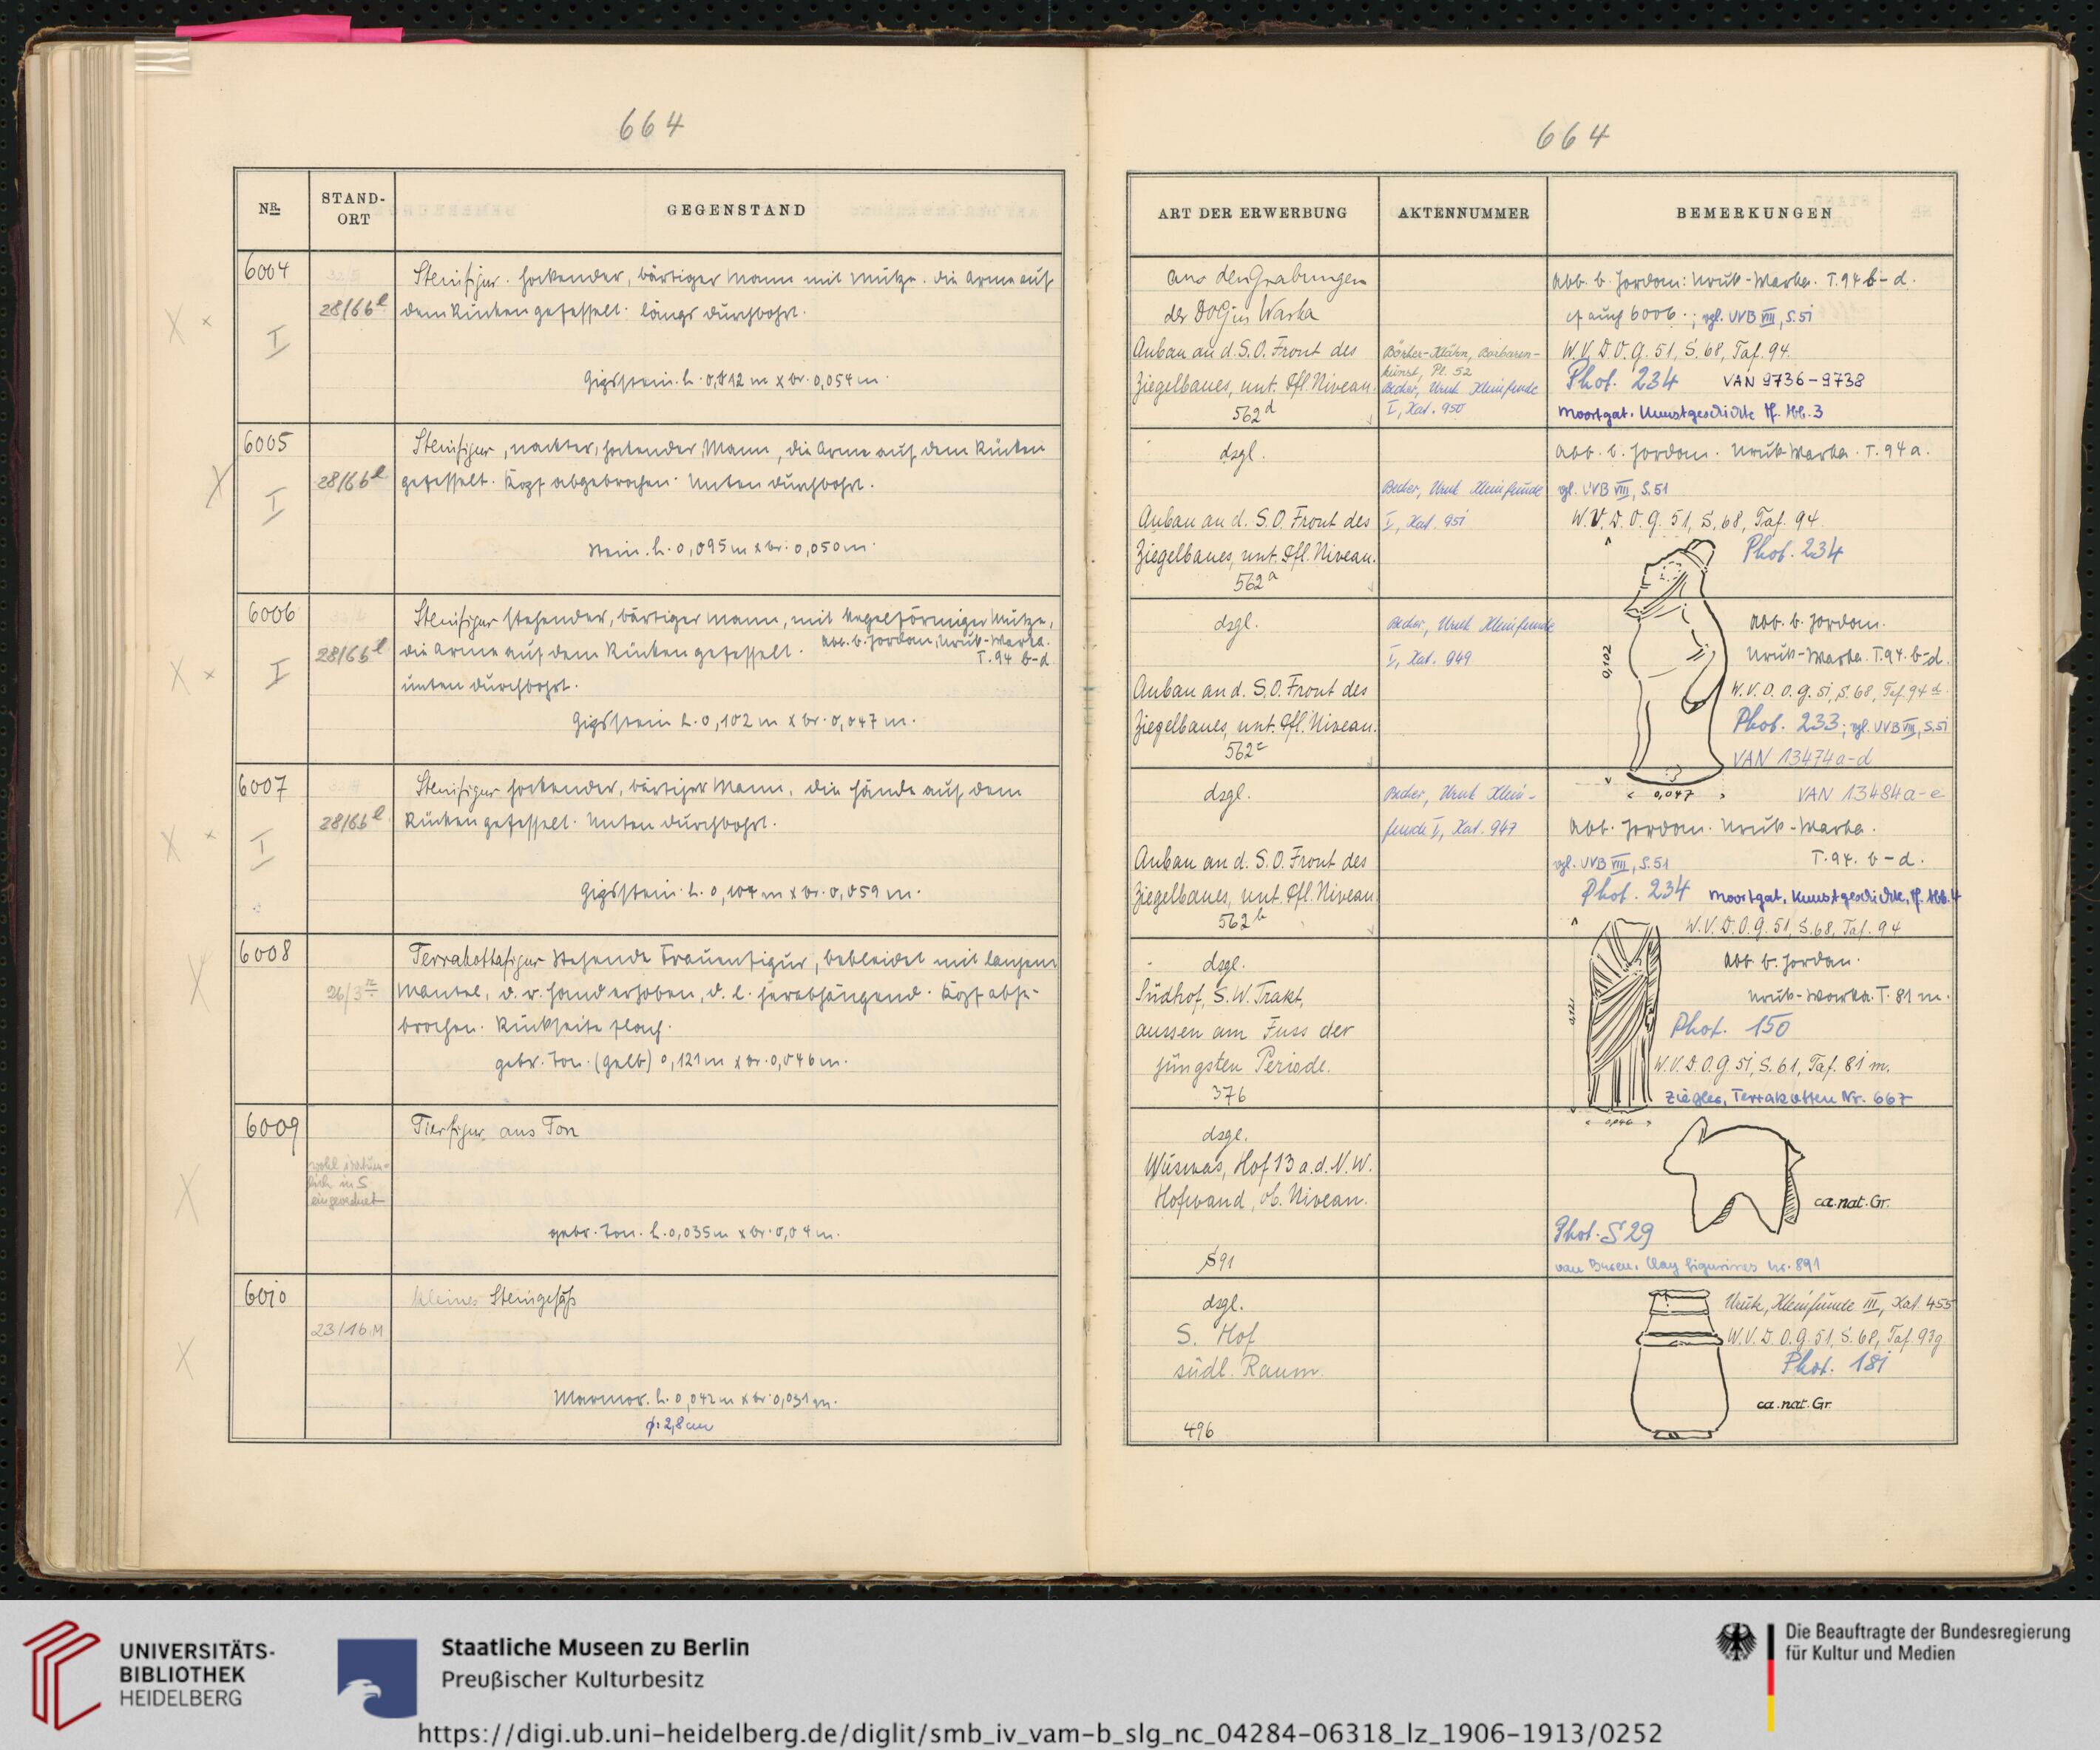 664
NR.
STAND-
ORT
GEGENSTAND
6004
28/66 l
I
Steinfigur. Hockender, bärtiger Mann mit Mütze. Die Arme auf
dem Rücken gefesselt. Längs durchbohrt.
Gipsstein. h. 0,812 m x br. 0,054 m.
6005
28/66 l
I
Steinfigur, nackter, hockender Mann, die Arme auf dem Rücken
gefesselt. Kopf abgebrochen. Unten durchbohrt.
Stein. h. 0,095 m x br. 0,050 m.
6006
28/66 l
I
Steinfigur stehender, bärtiger Mann, mit kegelförmiger Mütze,
die Arme auf dem Rücken gefesselt. Abb. b. Jordan, Uruk-Warka.
T. 94 b-d
unten durchbohrt.
Gipsstein h. 0,102 m x br. 0,047 m.
6007
28/66 l
I
Steinfigur hockender, bärtiger Mann, die Hände auf dem
Rücken gefesselt. Unten durchbohrt.
Gipsstein. h. 0,107 m x br. 0,059 m.
6008
26/3
Terrakottafigur Stehende Frauenfigur, bekleidet mit langem
Mantel, d. r. Hand erhoben, d. l. herabhängend. Kopf abge-
brochen. Rückseite flach.
gebr. Ton. (gelb) 0,121 m x br. 0,046 m.
6009
wohl irrtüm-
lich in S
eingeordnet
Tierfigur aus Ton
gebr. Ton. h. 0,035 m x br. 0,04 m.
6010
23/16 M
kleines Steingefäß
Marmor. h. 0,042 m x br. 0,031 m.
φ: 2,8 cm
664
ART DER ERWERBUNG
AKTENNUMMER
BEMERKUNGEN
aus den Grabungen
der DOG in Warka
Anbau an d. S.O. Front des
Ziegelbaues, unt. Niveau.
562 d
Börker-Klähn, Barbaren-
kunst, Pl. 52
Becker, Uruk Kleinfunde
I, Kat. 950
Abb. b. Jordan: Uruk-Warka. T. 94 b-d.
cf auch 6006.; vgl. UVB VIII, S. 51
W.V.D.O.G. 51, S. 68, Taf. 94.
Phot. 234 VAN 9736-9738
Moortgat. Kunstgeschichte Abb. 3
dsgl.
Anbau an d. S.O. Front des
Ziegelbaues, unt. Niveau.
562 a
Becker, Uruk Kleinfunde
I, Kat. 951
Abb. b. Jordan. Uruk Warka. T. 94 a.
vgl. UVB VIII, S. 51
W.V.D.O.G. 51, S. 68, Taf. 94
Phot. 234
dsgl.
Anbau an d. S.O. Front des
Ziegelbaues, unt. Niveau.
562 c
Becker, Uruk Kleinfunde
I, Kat. 949
0,102
0,047
Abb. b. Jordan.
Uruk-Warka. T. 94. b-d.
W.V.D.O.G. 51, S. 68, Taf. 94 d.
Phot. 233; vgl. UVB VIII, S. 51
VAN 13474 a-d
dsgl.
Anbau an d. S.O. Front des
Ziegelbaues, unt. Niveau.
562 b
Becker, Uruk Klein-
funde I, Kat. 947
VAN 13484 a-e
Abb. Jordan. Uruk-Warka.
vgl. UVB VIII, S. 51 T. 94. b-d.
Phot. 234 Moortgat, Kunstgeschichte, Abb. 4
W.V.D.O.G. 51, S. 68, Taf. 94
dsgl.
Südhof, S.W. Trakt,
aussen am Fuss der
jüngsten Periode.
376
0,121
0,046
Abb. b. Jordan.
Uruk-Warka. T. 81 m.
Phot. 150
W.V.D.O.G. 51, S. 61, Taf. 81 m.
Ziegler, Terrakotten Nr. 667
dsgl.
Wuswas, Hof 13 a.d. N.W.
Hofwand, ob. Niveau.
S 91
ca. nat. Gr.
Phot. S 29
van Buren, Clay figurines nr. 891
dsgl.
S. Hof
südl. Raum.
496
Uruk, Kleinfunde III, Kat. 455
W.V.D.O.G. 51, S. 68, Taf. 93 g
Phot. 181
ca. nat. Gr.
UNIVERSITÄTS-
BIBLIOTHEK
HEIDELBERG
Staatliche Museen zu Berlin
Preußischer Kulturbesitz
Die Beauftragte der Bundesregierung
für Kultur und Medien
https://digi.ub.uni-heidelberg.de/diglit/smb_iv_vam-b_slg_nc_04284-06318_lz_1906-1913/0252